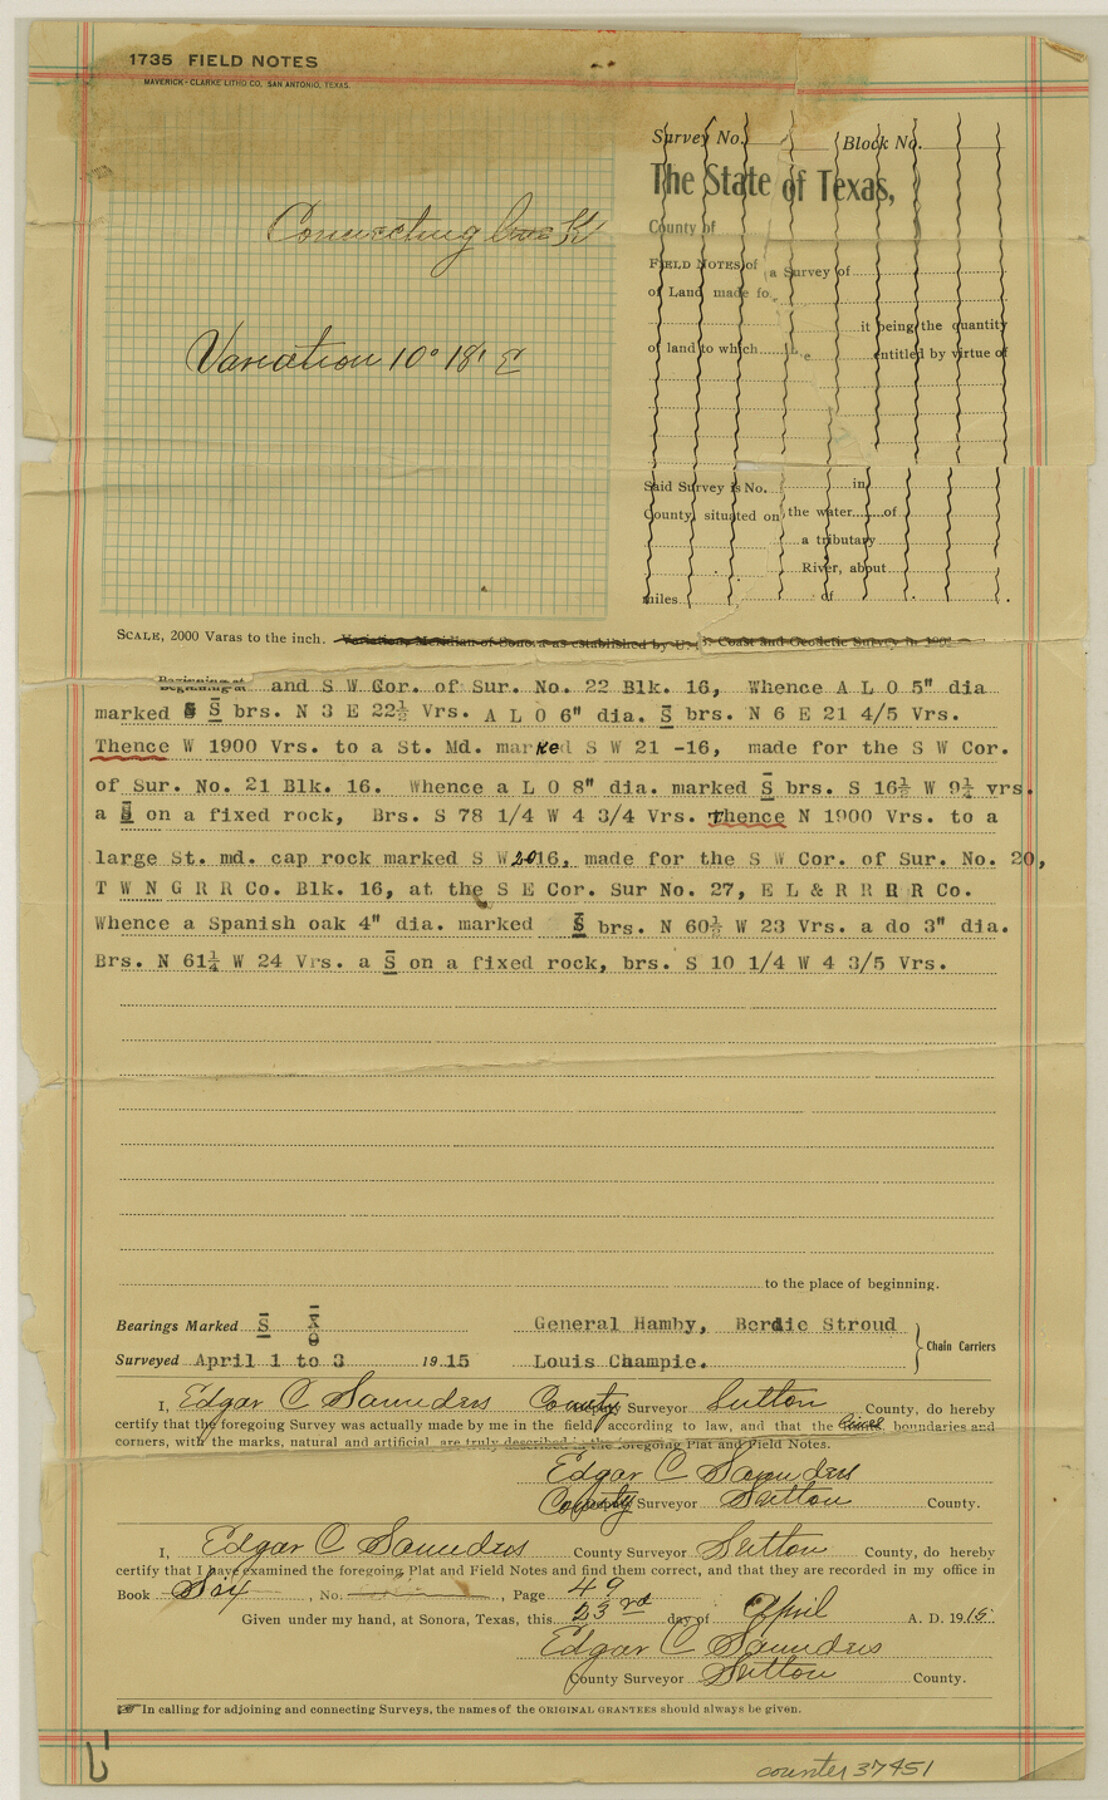 1735 FIELD NOTES
MAVERICK-CLARKE LITHO CO, SAN ANTONIO, TEXAS.
Connecting
Variation 10° 18' E
Survey No. Block No.
The State of Texas,
County of
FIELD NOTES of a Survey of
of Land made fo
it being the quantity
of land to which e entitled by virtue of
Said Survey is No. in
County, situated on the water of
a tributary
River, about
miles of
SCALE, 2000 Varas to the inch. Variation, Meridian of Sonora as established by U. S. Coast and Geodetic Survey in 190
Beginning at and S W Cor. of Sur. No. 22 Blk. 16, Whence A L O 5" dia
marked S̅ brs. N 3 E 22½ Vrs. A L O 6" dia. S̅ brs. N 6 E 21 4/5 Vrs.
Thence W 1900 Vrs. to a St. Md. marked S W 21 -16, made for the S W Cor.
of Sur. No. 21 Blk. 16. Whence a L O 8" dia. marked S̅ brs. S 16½ W 9¼ vrs.
a S̅ on a fixed rock, Brs. S 78 1/4 W 4 3/4 Vrs. thence N 1900 Vrs. to a
large St. md. cap rock marked S W 2016, made for the S W Cor. of Sur. No. 20,
T W N G R R Co. Blk. 16, at the S E Cor. Sur No. 27, E L & R R R R Co.
Whence a Spanish oak 4" dia. marked S̅ brs. N 60½ W 23 Vrs. a do 3" dia.
Brs. N 61¼ W 24 Vrs. a S̅ on a fixed rock, brs. S 10 1/4 W 4 3/5 Vrs.
to the place of beginning.
Bearings Marked S̅ X̅ O General Hamby, Berdie Stroud
Surveyed April 1 to 3 1915 Louis Champie. Chain Carriers
I, Edgar C Saunders County Surveyor Sutton County, do hereby
certify that the foregoing Survey was actually made by me in the field, according to law, and that the lines, boundaries and
corners, with the marks, natural and artificial, are truly described in the foregoing Plat and Field Notes.
Edgar C Saunders
County Surveyor Sutton County.
I, Edgar C Saunders County Surveyor Sutton County, do hereby
certify that I have examined the foregoing Plat and Field Notes and find them correct, and that they are recorded in my office in
Book Six, No. , Page 49
Given under my hand, at Sonora, Texas, this 23rd day of April A. D. 1915.
Edgar C Saunders
County Surveyor Sutton County.
In calling for adjoining and connecting Surveys, the names of the ORIGINAL GRANTEES should always be given.
counter 37451